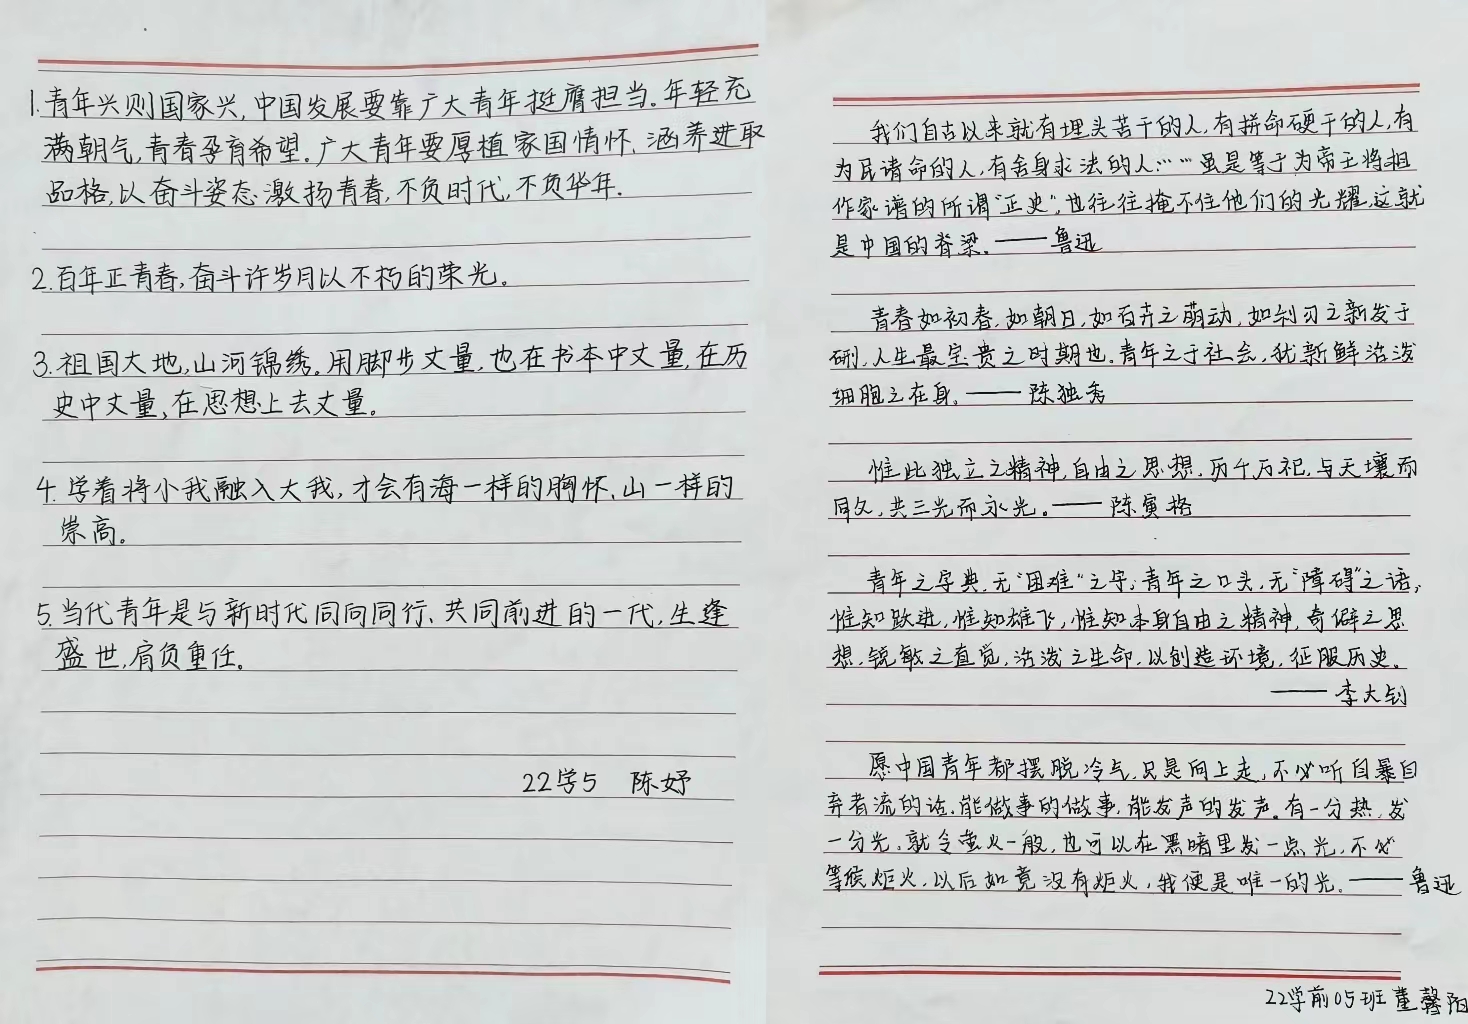 1.青年兴则国家兴,中国发展要靠广大青年挺膺担当。年轻充
满朝气,青春孕育希望。广大青年要厚植家国情怀、涵养进取
品格,以奋斗姿态激扬青春,不负时代,不负华年.
2.百年正青春,奋斗许岁月以不朽的荣光。
3.祖国大地,山河锦绣。用脚步丈量,也在书本中丈量,在历
史中丈量,在思想上去丈量。
4.学着将小我融入大我,才会有海一样的胸怀、山一样的
崇高。
5.当代青年是与新时代同向同行、共同前进的一代,生逢
盛世,肩负重任。
22学5 陈妤
我们自古以来就有埋头苦干的人,有拼命硬干的人,有
为民请命的人,有舍身求法的人,……虽是等于为帝王将相
作家谱的所谓“正史”,也往往掩不住他们的光耀,这就
是中国的脊梁。——鲁迅
青春如初春,如朝日,如百卉之萌动,如利刃之新发于
硎,人生最宝贵之时期也。青年之于社会,犹新鲜活泼
细胞之在身。——陈独秀
惟此独立之精神,自由之思想,历千万祀,与天壤而
同久,共三光而永光。——陈寅格
青年之字典,无“困难”之字;青年之口头,无“障碍”之语;
惟知跃进,惟知雄飞,惟知本身自由之精神,奇僻之思
想,锐敏之直觉,活泼之生命,以创造环境,征服历史。
——李大钊
愿中国青年都摆脱冷气,只是向上走,不必听自暴自
弃者流的话。能做事的做事,能发声的发声。有一分热,发
一分光。就令萤火一般,也可以在黑暗里发一点光,不必
等候炬火。以后如竟没有炬火,我便是唯一的光。——鲁迅
22学前05班 董馨阳